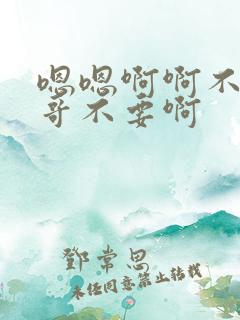 嗯嗯啊啊不
哥不要啊
鄧常思
未经同意禁止转载